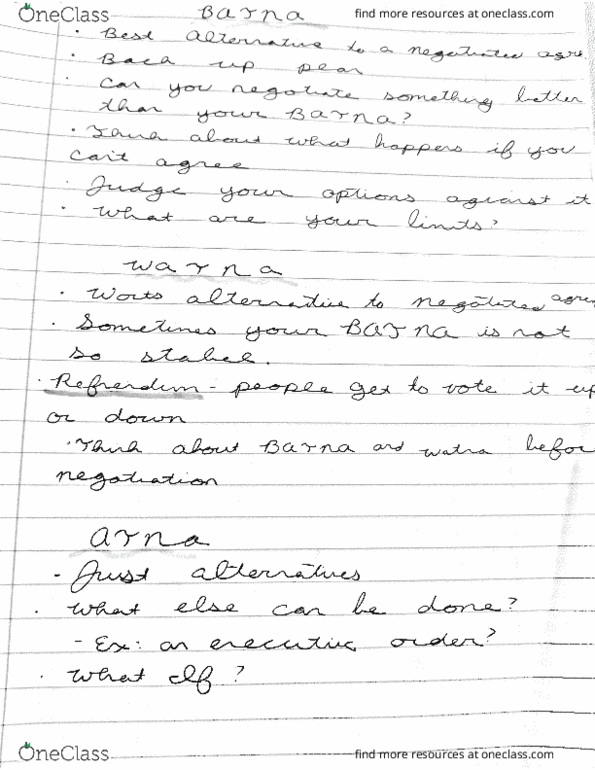 OneClass find more resources at oneclass.com
BATNA
· Best alternative to a negotiated agre
· Back up plan
· Can you negotiate something better
than your BATNA?
· Think about what happens if you
can't agree
· Judge your options against it
· What are your limits?
WATNA
· Worts alternative to negotiated agree
· Sometimes your BATNA is not
so stabel.
· Refrendum - people get to vote it up
or down
· Think about BATNA and watna befor
negotiation
ATNA
- Just alternatives
· What else can be done?
- Ex: an executive order?
· What If?
OneClass find more resources at oneclass.com